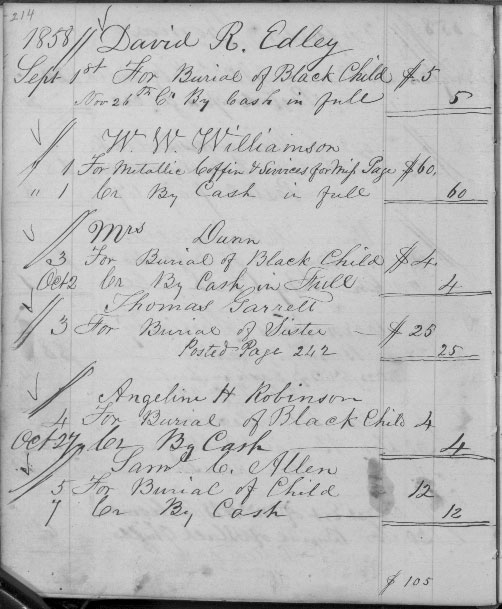 214
1858 David R. Edley
Sept 1st For Burial of Black Child $5
Nov 26th Cr By Cash in full 5
W. W. Williamson
" 1 For Metallic Coffin & Services for Miss Page $60.
" 1 Cr By Cash in full 60
Mrs Dunn
3 For Burial of Black Child $4
Oct 2 Cr By Cash in Full 4
Thomas Garrett
3 For Burial of Sister — $25
Posted Page 242 25
Angeline H Robinson
4 For Burial of Black Child 4
Oct 27 Cr By Cash 4
Saml C. Allen
5 For Burial of Child 12
7 Cr By Cash — 12
$105